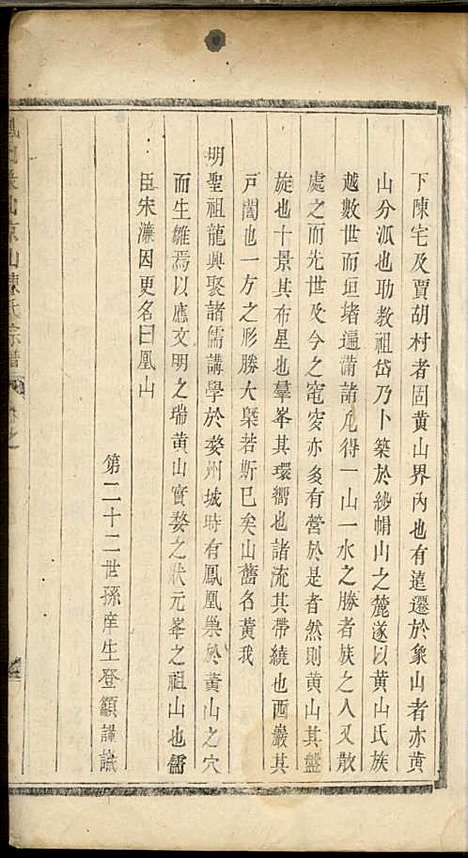 下陳宅及賈胡村者固黄山界內也有遠遷於象山者亦黄
山分派也助教祖岱乃卜築於紗帽山之麓遂以黄山氏族
越數世而垣堵遍滿諸凡得一山一水之勝者族之人又散
處之而先世及今之窀穸亦多有營於是者然則黄山其盤
旋也十景其布星也羣峯其環衛也諸流其帶繞也西巖其
戸闥也一方之形勝大槩若斯已矣山舊名黄我
明聖祖龍興聚諸儒講學於婺州城時有鳳凰巢於黄山之穴
而生雛焉以應文明之瑞黄山實婺之狀元峯之祖山也儒
臣宋濂因更名曰凰山
第二十二世孫庠生登額謹識
山陳氏宗譜